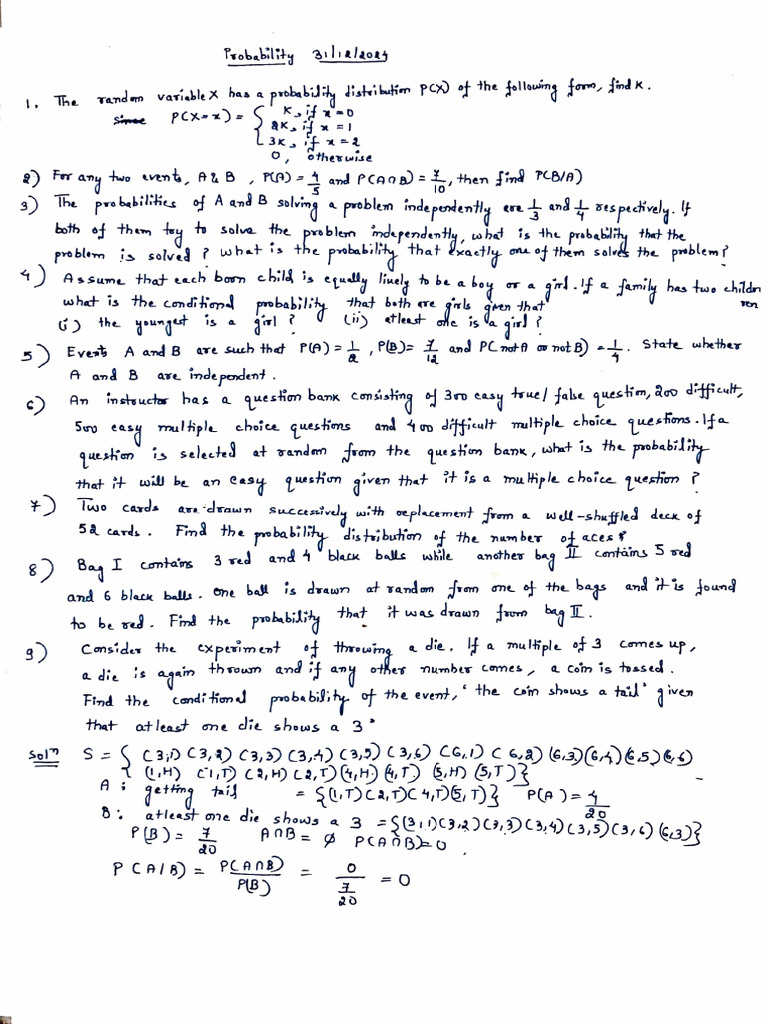 Probability 31/12/2024
1. The random variable X has a probability distribution P(X) of the following form, find K.
since P(X=x) = { K, if x=0
2K, if x=1
3K, if x=2
0, otherwise
2) For any two events, A & B, P(A)=4/5 and P(A∩B)=7/10, then find P(B/A)
3) The probabilities of A and B solving a problem independently are 1/3 and 1/4 respectively. If
both of them try to solve the problem independently, what is the probability that the
problem is solved? What is the probability that exactly one of them solves the problem?
4) Assume that each born child is equally likely to be a boy or a girl. If a family has two children
what is the conditional probability that both are girls given that
(i) the youngest is a girl? (ii) atleast one is a girl?
5) Events A and B are such that P(A)=1/2, P(B)=7/12 and P(not A or not B)=1/4. State whether
A and B are independent.
6) An instructor has a question bank consisting of 300 easy true/false question, 200 difficult,
500 easy multiple choice questions and 400 difficult multiple choice questions. If a
question is selected at random from the question bank, what is the probability
that it will be an easy question given that it is a multiple choice question?
7) Two cards are drawn successively with replacement from a well-shuffled deck of
52 cards. Find the probability distribution of the number of aces?
8) Bag I contains 3 red and 4 black balls while another bag II contains 5 red
and 6 black balls. One ball is drawn at random from one of the bags and it is found
to be red. Find the probability that it was drawn from bag II.
9) Consider the experiment of throwing a die. If a multiple of 3 comes up,
a die is again thrown and if any other number comes, a coin is tossed.
Find the conditional probability of the event, 'the coin shows a tail' given
that atleast one die shows a 3'
Solⁿ S = { (3,1) (3,2) (3,3) (3,4) (3,5) (3,6) (6,1) (6,2) (6,3) (6,4) (6,5) (6,6)
(1,H) (1,T) (2,H) (2,T) (4,H) (4,T) (5,H) (5,T)}
A: getting tail = {(1,T) (2,T) (4,T) (5,T)} P(A) = 4/20
B: atleast one die shows a 3 = {(3,1) (3,2) (3,3) (3,4) (3,5) (3,6) (6,3)}
P(B) = 7/20 A∩B = ∅ P(A∩B)=0
P(A/B) = P(A∩B)/P(B) = 0/(7/20) = 0